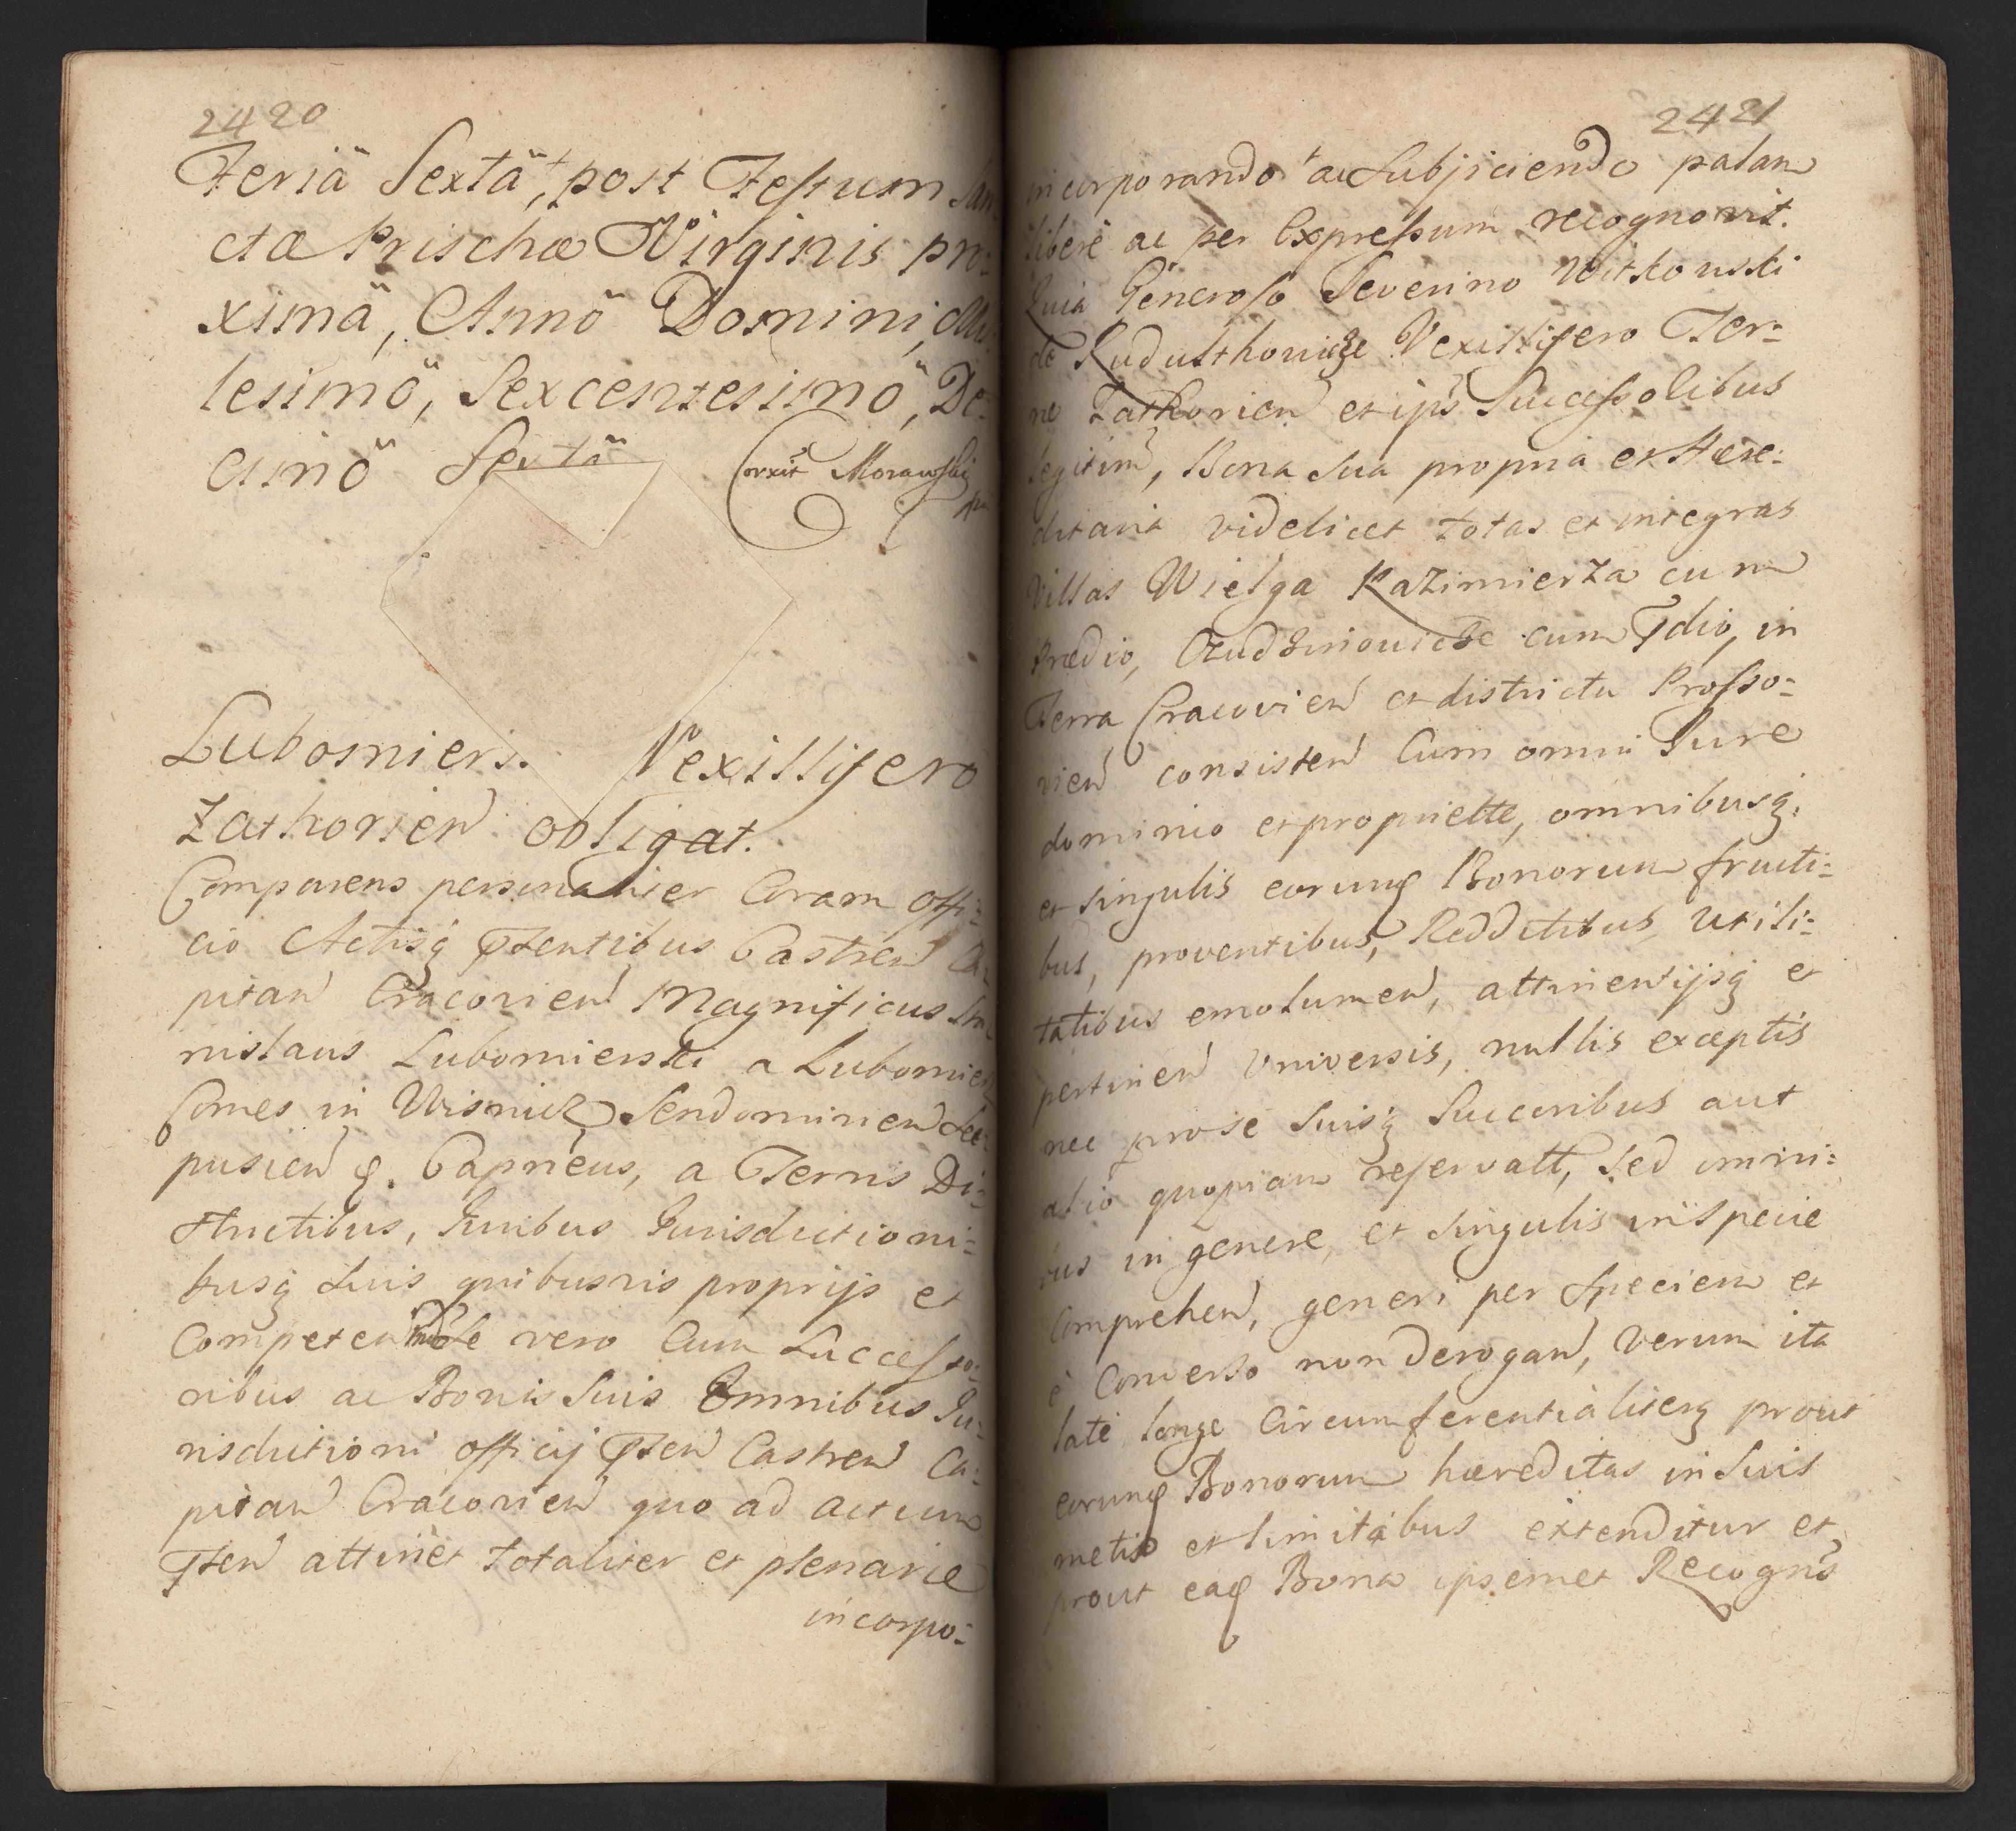 2420
Feriä Sextä, post Festum San-
ctæ Prischæ Virginis pro-
ximä, Annö Domini, Mil-
lesimö, Sexcentesimö, De-
cimö Sextö
Corxit Morawski
Lubomiers. Vexillifero
Zathorien obligat.
Comparens personaliter Coram offi-
cio Actisq pntentibus Castren Ca-
pitan Cracovien Magnificus Sta-
nislaus Lubomierski a Lubomierz
Comes in Wisnicz Sendomirien Sce-
pusien q. Capneus, a Terris Di-
strictibus, Iuribus Iurisdictioni-
busq suis quibusvis proprijs et
Competen inde se vero Cum Successo-
ribus ac Bonis Suis Omnibus Iu-
risdictioni officij pnten Castren Ca-
pitan Cracovien quo ad actum
pnten attinet totaliter et plenarie
incorpo-
2421
incorporando ac Subjiciendo palam
libere ac per Expressum recognovit.
Quia Generoso Severino Witkowski
de Rudulthowicze Vexillifero Ter-
re Zathorien et ips Successolibus
legitim, Bona Sua propria et Here-
ditaria videlicet totas et integras
Villas Wielga Kazimierza cum
Prædio, Odrzinowicze cum pdio, in
Terra Cracovien et districtu Prosso-
vien consisten Cum omni Iure
dominio et propriette, omnibusq.
et singulis eorunq Bonorum fructi-
bus, proventibus, Redditibus, utili-
tatibus emolumen, attinentijsq et
pertinen Universis, nullis exceptis
nec pro se Suisq Succoribus aut
alio quopiam reservatt, Sed omni-
bus in genere, et Singulis in Specie
Comprehen, generi per Speciem et
è Converso non derogan, Verum ita
late longe Circumferentialiterq prout
eorunq Bonorum hæreditas in Suis
metis et limitibus extenditur et
prout eaq Bona ipsemet Recogns